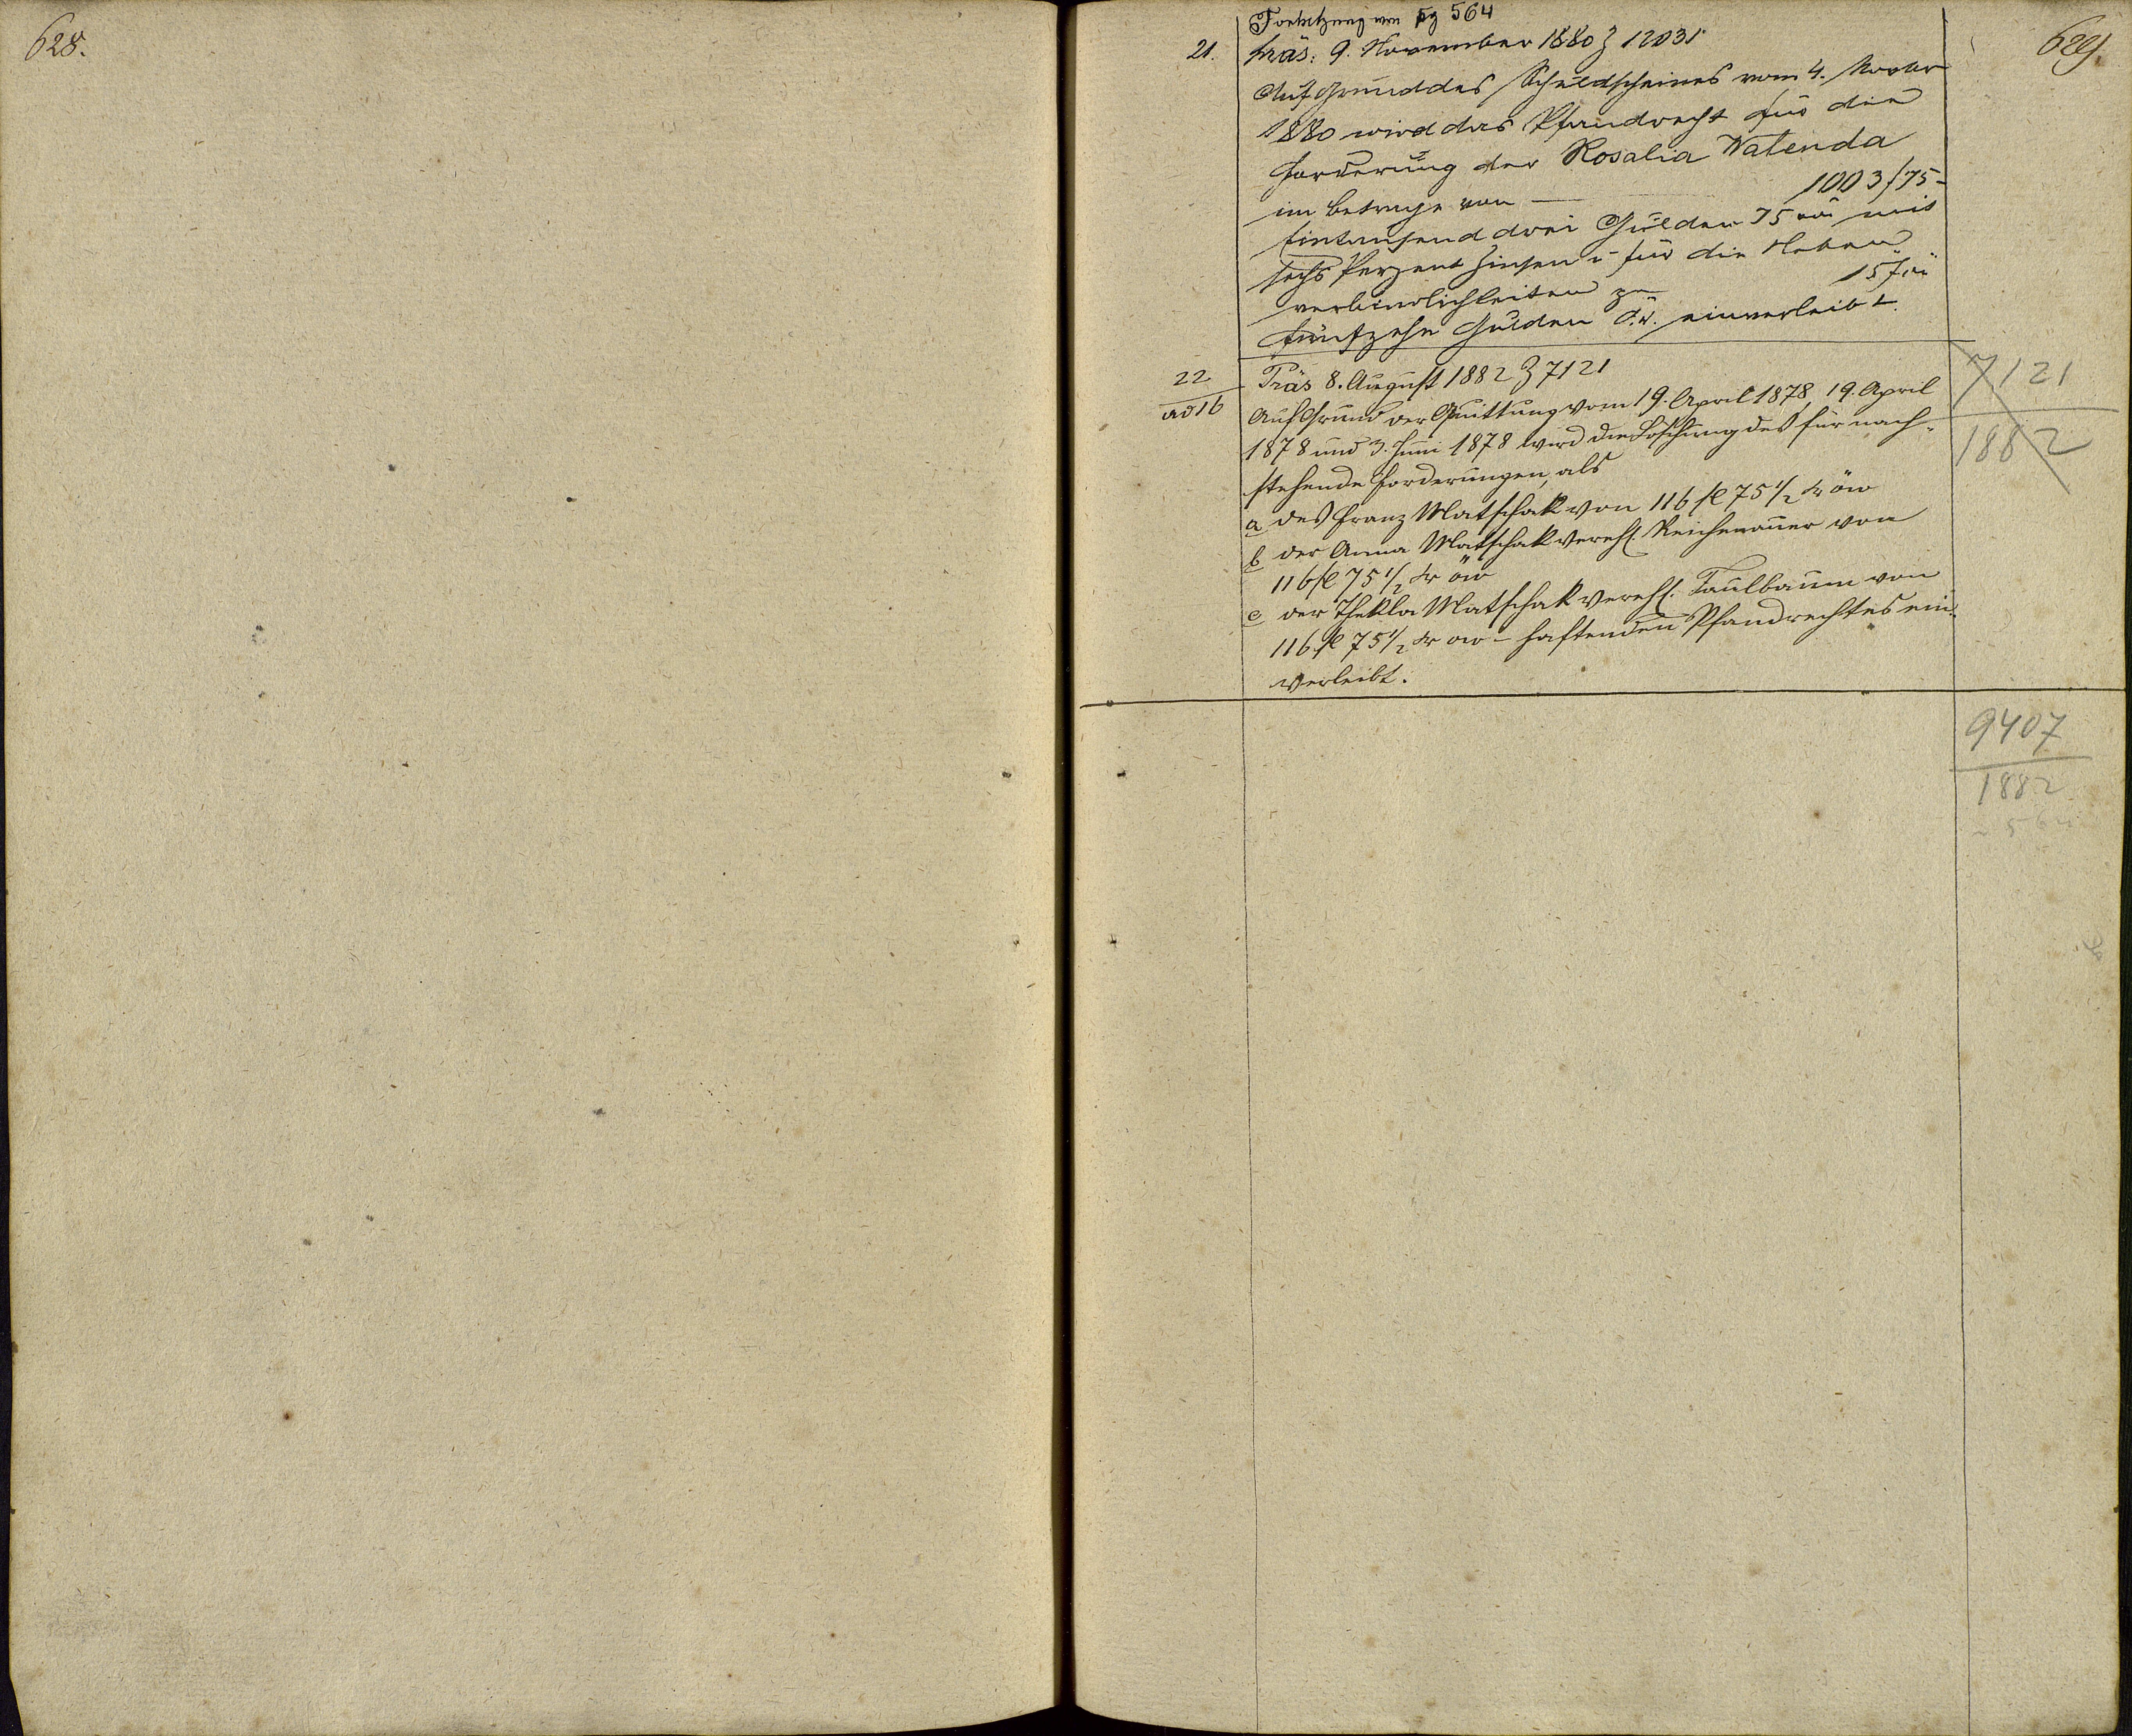 628.
629.
Fortsetzung von pg 564
21.
Präs: 9. November 1880 Z 12031
Auf Grund des Schuldscheines vom 4. Novbr
1880 wird das Pfandrecht für die
Forderung der Rosalia Watenda
im Betrage von — 1003 f 75 –
Eintausend drei Gulden 75 mit
sechs Perzent Zinsen u für die Neben-
verbindlichkeiten zu 15 f
fünfzehn Gulden ö.W. einverleibt.
22
ad 16
Präs 8. August 1882 Z 7121
Auf Grund der Quittung vom 19. April 1878, 19. April
1878 und 3. Juni 1878 wird die Löschung des für nach-
stehende Forderungen, als
a des Franz Matschak von 116 fl 75 1/2 kr öw
b der Anna Matschak verehl. Reichenauer von
116 fl 75 1/2 kr öw
c der Thekla Matschak verehl. Faulbaum von
116 fl 75 1/2 kr öw – haftenden Pfandrechtes ein-
verleibt.
7121
1882
9407
1882
564